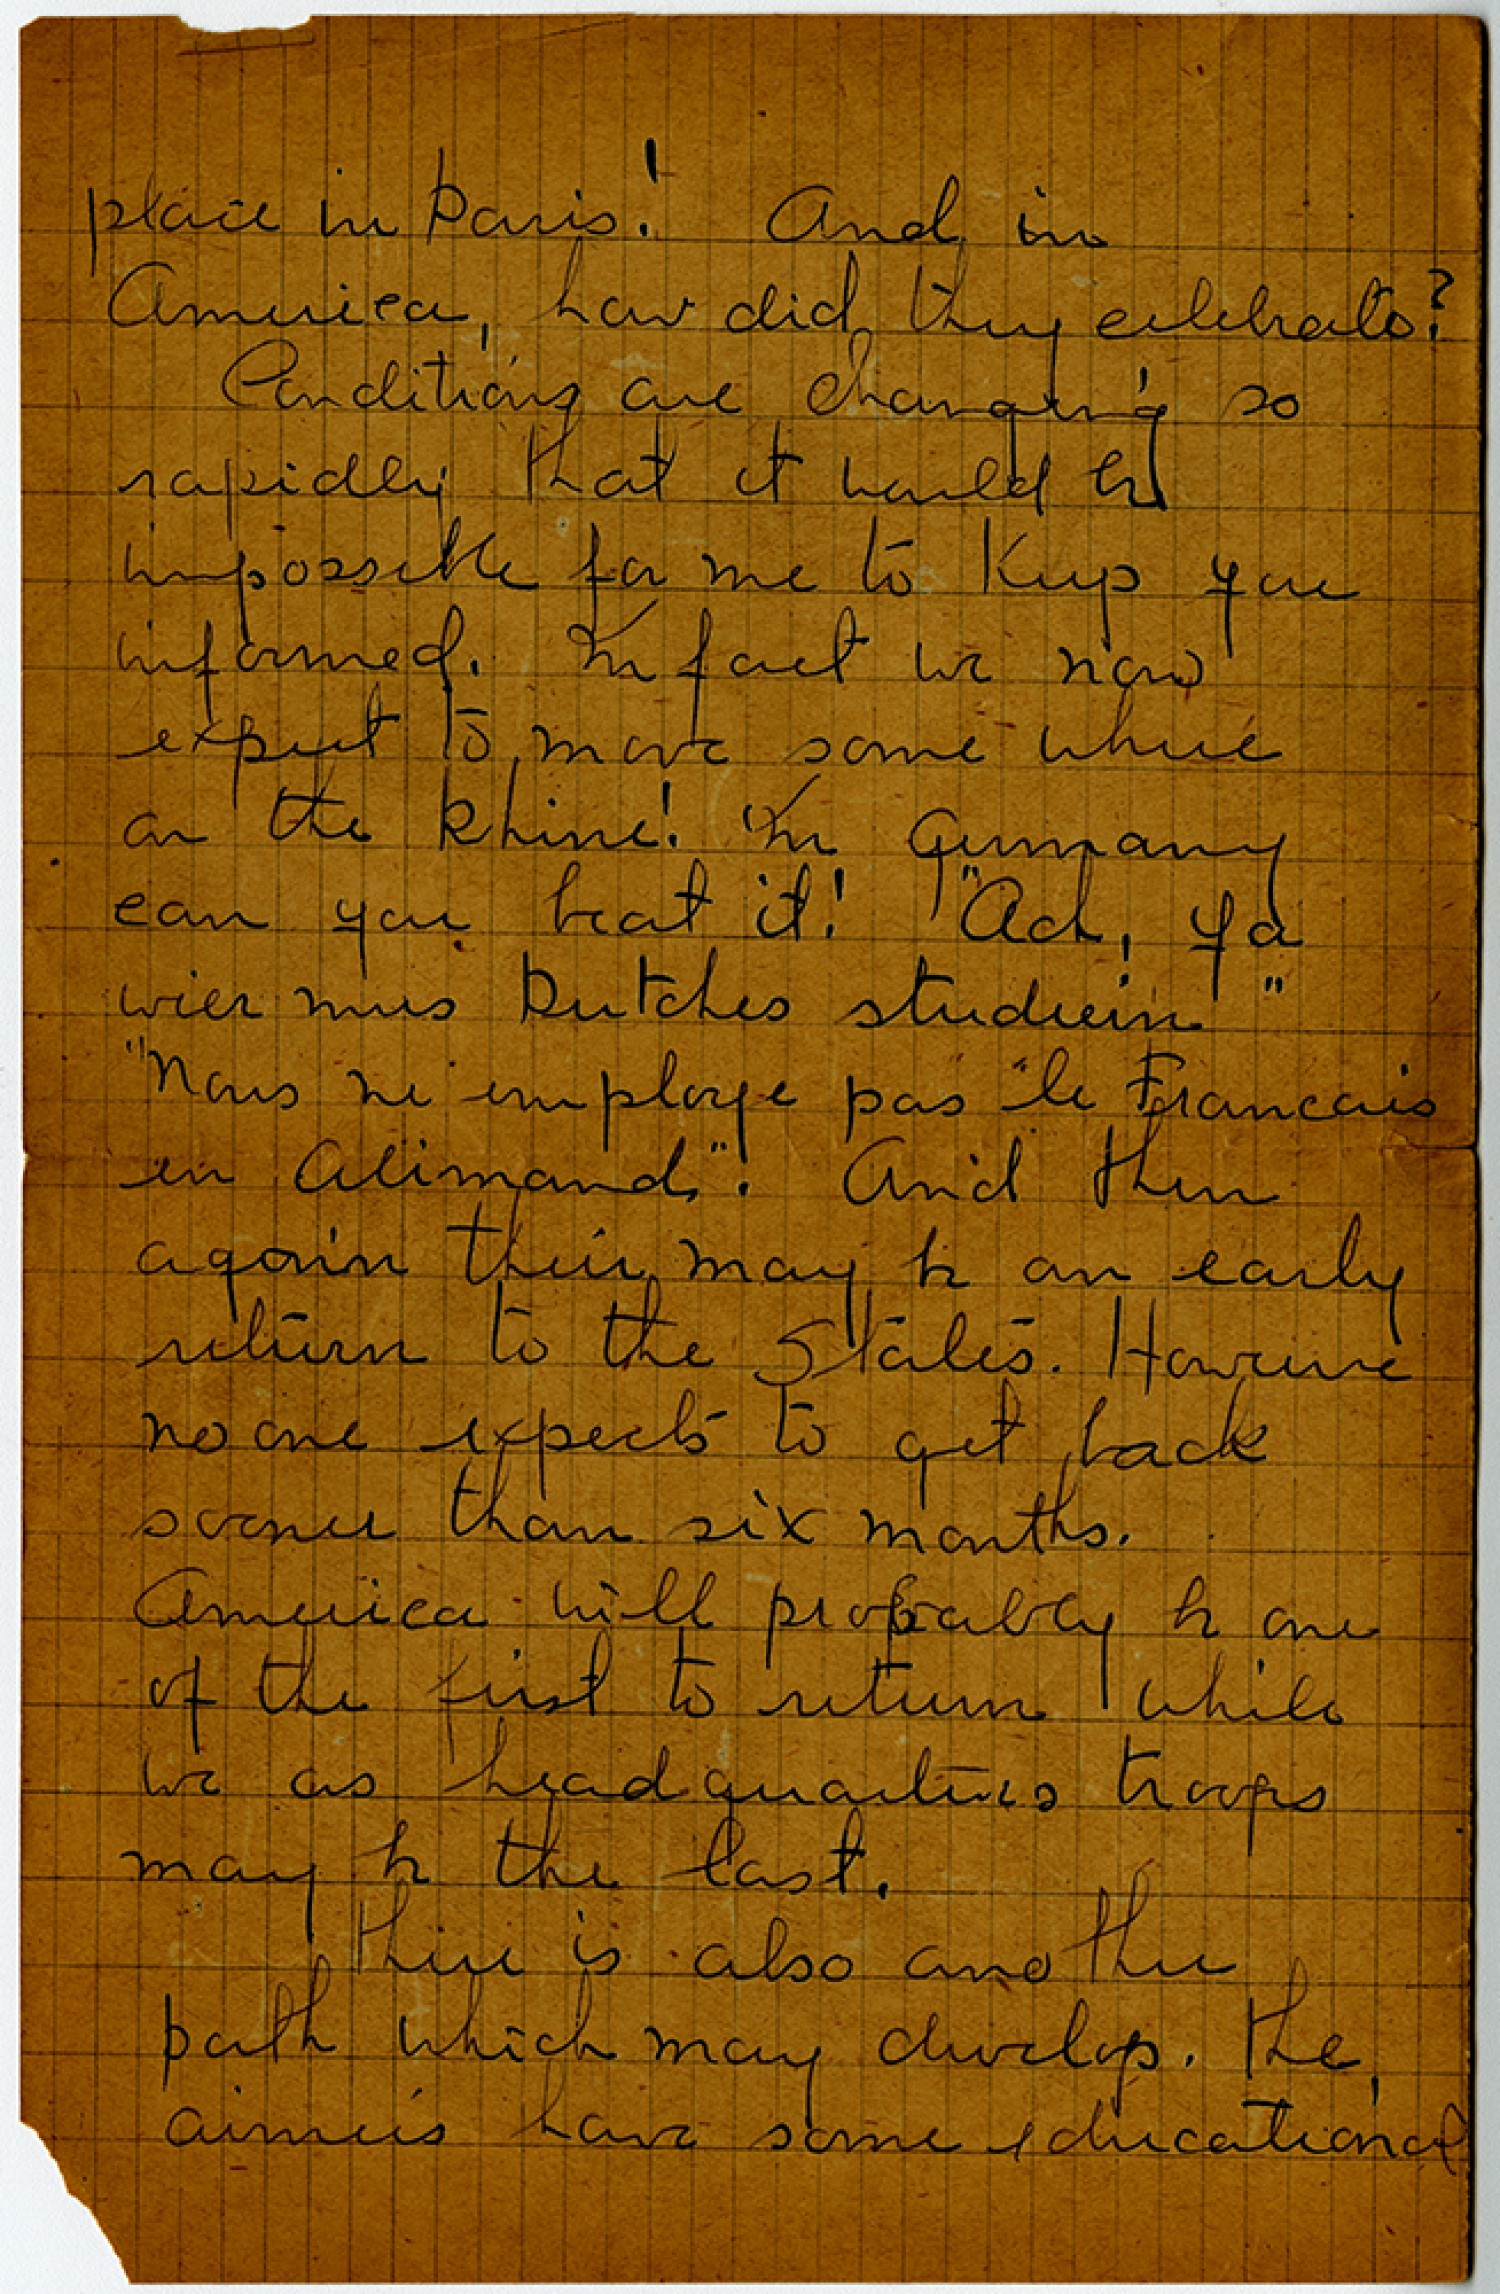 place in Paris! And in
America, how did they celebrate?
Conditions are changing so
rapidly that it would be
impossible for me to keep you
informed. In fact we now
expect to move some where
on the Rhine! In Germany
can you beat it! "Ach, Ya
wier mus Dutches studiern"
"Nous ne employe pas le Francais
en Allimand"! And then
again their may be an early
return to the States. However
no one expects to get back
sooner than six months.
America will probably be one
of the first to return while
we as headquarters troops
may be the last.
There is also another
path which may develop. The
armies have some educational